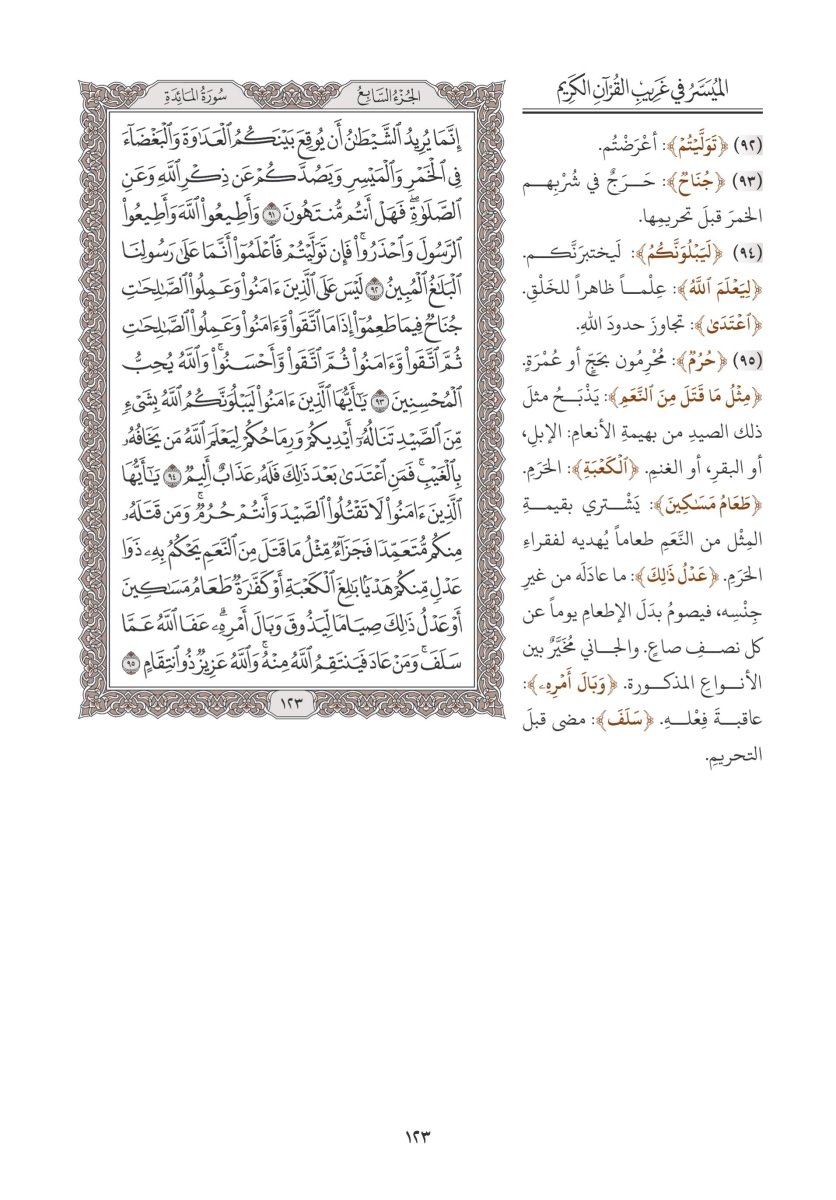 الميسر في غريب القرآن الكريم
(٩٢) ﴿تَوَلَّيْتُمْ﴾: أعْرَضْتُم.
(٩٣) ﴿جُنَاحٌ﴾: حَـــرَجٌ في شُرْبِهـــم
الخمرَ قبلَ تحريمِها.
(٩٤) ﴿لَيَبْلُوَنَّكُمُ﴾: لَيختبرَنَّكـــم.
﴿لِيَعْلَمَ ٱللَّهُ﴾: عِلْمـــاً ظاهراً للخَلْقِ.
﴿ٱعْتَدَىٰ﴾: تجاوزَ حدودَ اللهِ.
(٩٥) ﴿حُرُمٌ﴾: مُحْرِمُون بحَجٍّ أو عُمْرَةٍ.
﴿مِثْلُ مَا قَتَلَ مِنَ ٱلنَّعَمِ﴾: يَذْبَـــحُ مثلَ
ذلك الصيدِ من بهيمةِ الأنعامِ: الإبلِ،
أو البقرِ، أو الغنمِ. ﴿ٱلْكَعْبَةِ﴾: الحَرَمِ.
﴿طَعَامُ مَسَٰكِينَ﴾: يَشْـــتري بقيمـــةِ
المِثْل من النَّعَمِ طعاماً يُهديه لفقراءِ
الحَرَمِ. ﴿عَدْلُ ذَٰلِكَ﴾: ما عادَلَه من غيرِ
جِنْسِه، فيصومُ بدَلَ الإطعامِ يوماً عن
كل نصـــفِ صاعٍ. والجـــاني مُخَيَّرٌ بين
الأنـــواعِ المذكـــورة. ﴿وَبَالَ أَمْرِهِۦ﴾:
عاقبـــةَ فِعْلـــهِ. ﴿سَلَفَ﴾: مضى قبلَ
التحريمِ.
الجزء السابع سورة المائدة
إِنَّمَا يُرِيدُ ٱلشَّيْطَٰنُ أَن يُوقِعَ بَيْنَكُمُ ٱلْعَدَٰوَةَ وَٱلْبَغْضَآءَ
فِى ٱلْخَمْرِ وَٱلْمَيْسِرِ وَيَصُدَّكُمْ عَن ذِكْرِ ٱللَّهِ وَعَنِ
ٱلصَّلَوٰةِۖ فَهَلْ أَنتُم مُّنتَهُونَ ٩١ وَأَطِيعُوا۟ ٱللَّهَ وَأَطِيعُوا۟
ٱلرَّسُولَ وَٱحْذَرُوا۟ۚ فَإِن تَوَلَّيْتُمْ فَٱعْلَمُوٓا۟ أَنَّمَا عَلَىٰ رَسُولِنَا
ٱلْبَلَٰغُ ٱلْمُبِينُ ٩٢ لَيْسَ عَلَى ٱلَّذِينَ ءَامَنُوا۟ وَعَمِلُوا۟ ٱلصَّٰلِحَٰتِ
جُنَاحٌ فِيمَا طَعِمُوٓا۟ إِذَا مَا ٱتَّقَوا۟ وَّءَامَنُوا۟ وَعَمِلُوا۟ ٱلصَّٰلِحَٰتِ
ثُمَّ ٱتَّقَوا۟ وَّءَامَنُوا۟ ثُمَّ ٱتَّقَوا۟ وَّأَحْسَنُوا۟ۗ وَٱللَّهُ يُحِبُّ
ٱلْمُحْسِنِينَ ٩٣ يَٰٓأَيُّهَا ٱلَّذِينَ ءَامَنُوا۟ لَيَبْلُوَنَّكُمُ ٱللَّهُ بِشَىْءٍ
مِّنَ ٱلصَّيْدِ تَنَالُهُۥٓ أَيْدِيكُمْ وَرِمَاحُكُمْ لِيَعْلَمَ ٱللَّهُ مَن يَخَافُهُۥ
بِٱلْغَيْبِۚ فَمَنِ ٱعْتَدَىٰ بَعْدَ ذَٰلِكَ فَلَهُۥ عَذَابٌ أَلِيمٌ ٩٤ يَٰٓأَيُّهَا
ٱلَّذِينَ ءَامَنُوا۟ لَا تَقْتُلُوا۟ ٱلصَّيْدَ وَأَنتُمْ حُرُمٌۚ وَمَن قَتَلَهُۥ
مِنكُم مُّتَعَمِّدًا فَجَزَآءٌ مِّثْلُ مَا قَتَلَ مِنَ ٱلنَّعَمِ يَحْكُمُ بِهِۦ ذَوَا
عَدْلٍ مِّنكُمْ هَدْيًۢا بَٰلِغَ ٱلْكَعْبَةِ أَوْ كَفَّٰرَةٌ طَعَامُ مَسَٰكِينَ
أَوْ عَدْلُ ذَٰلِكَ صِيَامًا لِّيَذُوقَ وَبَالَ أَمْرِهِۦۗ عَفَا ٱللَّهُ عَمَّا
سَلَفَۚ وَمَنْ عَادَ فَيَنتَقِمُ ٱللَّهُ مِنْهُۚ وَٱللَّهُ عَزِيزٌ ذُو ٱنتِقَامٍ ٩٥
١٢٣
١٢٣